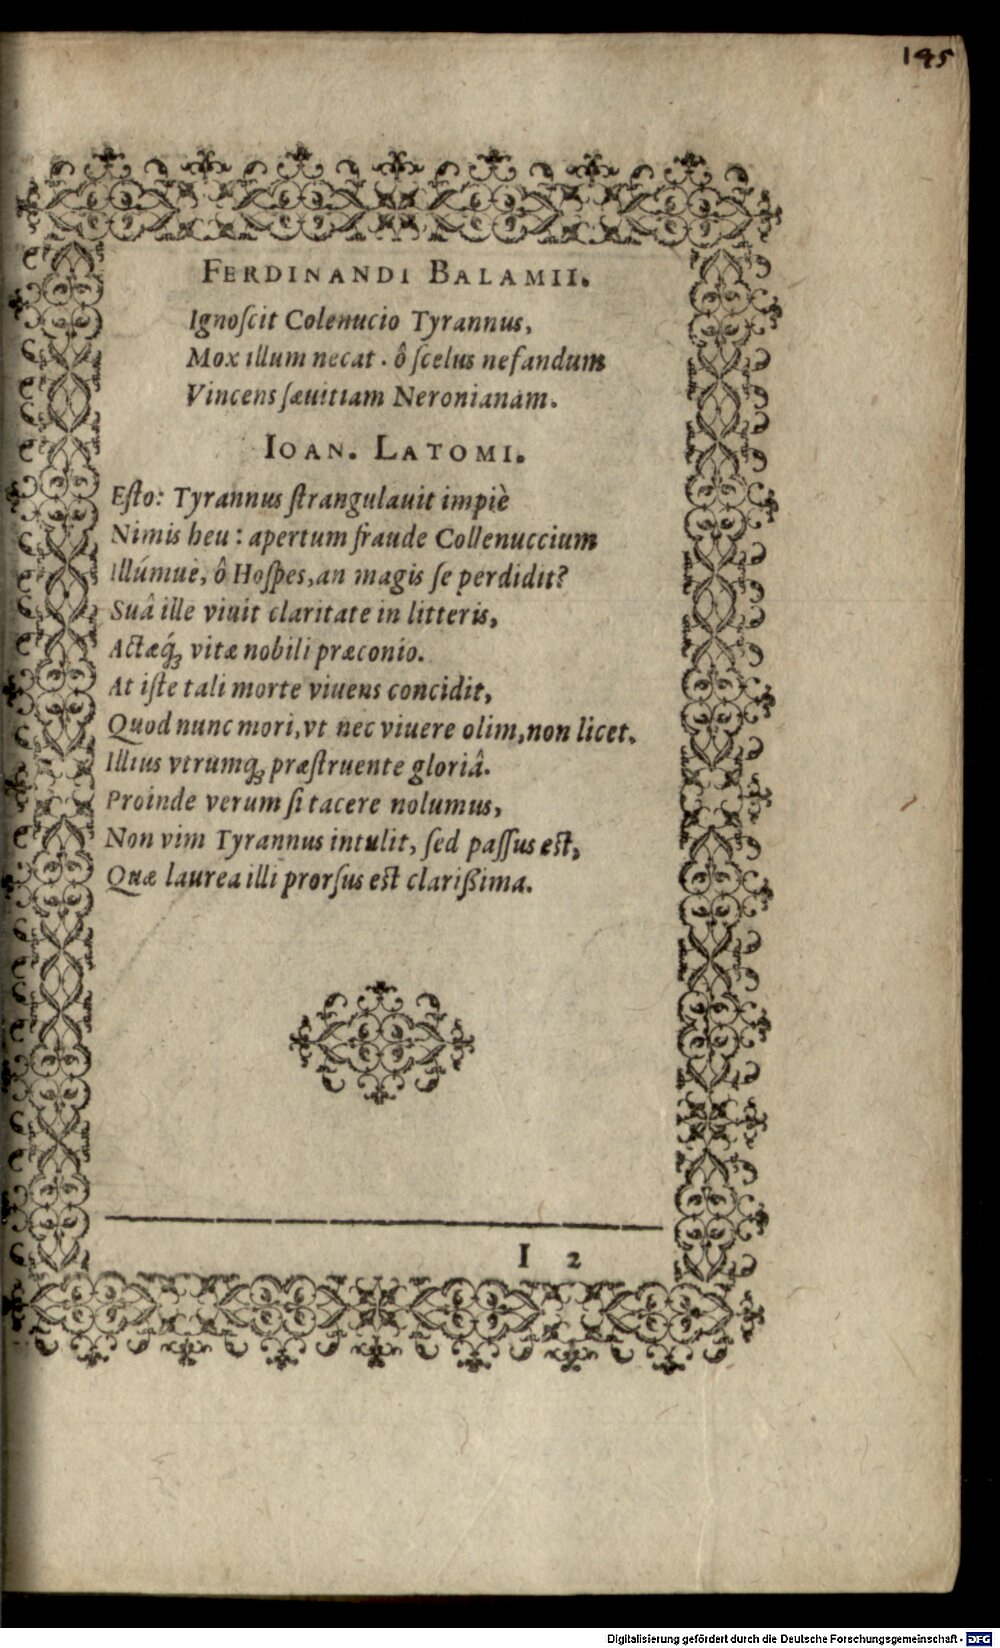 145
FERDINANDI BALAMII.
Ignoſcit Colenucio Tyrannus,
Mox illum necat. ô ſcelus nefandum
Vincens ſæuitiam Neronianam.
IOAN. LATOMI.
Eſto: Tyrannus ſtrangulauit impiè
Nimis heu: apertum fraude Collenuccium
Illúmue, ô Hoſpes, an magis ſe perdidit?
Suâ ille viuit claritate in litteris,
Actæq́; vitæ nobili præconio.
At iſte tali morte viuens concidit,
Quod nunc mori, vt nec viuere olim, non licet.
Illius vtrumq; præſtruente gloriâ.
Proinde verum ſi tacere nolumus,
Non vim Tyrannus intulit, ſed paſſus eſt,
Quæ laurea illi prorſus eſt clariſſima.
I 2
Digitalisierung gefördert durch die Deutsche Forschungsgemeinschaft - DFG